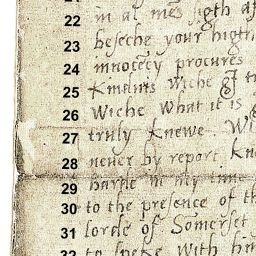 22 in al mes sigth af
23 beseche your hight
24 innocecy procures
25 wiche
26 Wiche what it is
27 truly knewe Wi
28 never by report, kn
29 in my
30 to the presence of th
31 lorde of Somerset
32 to speke with him